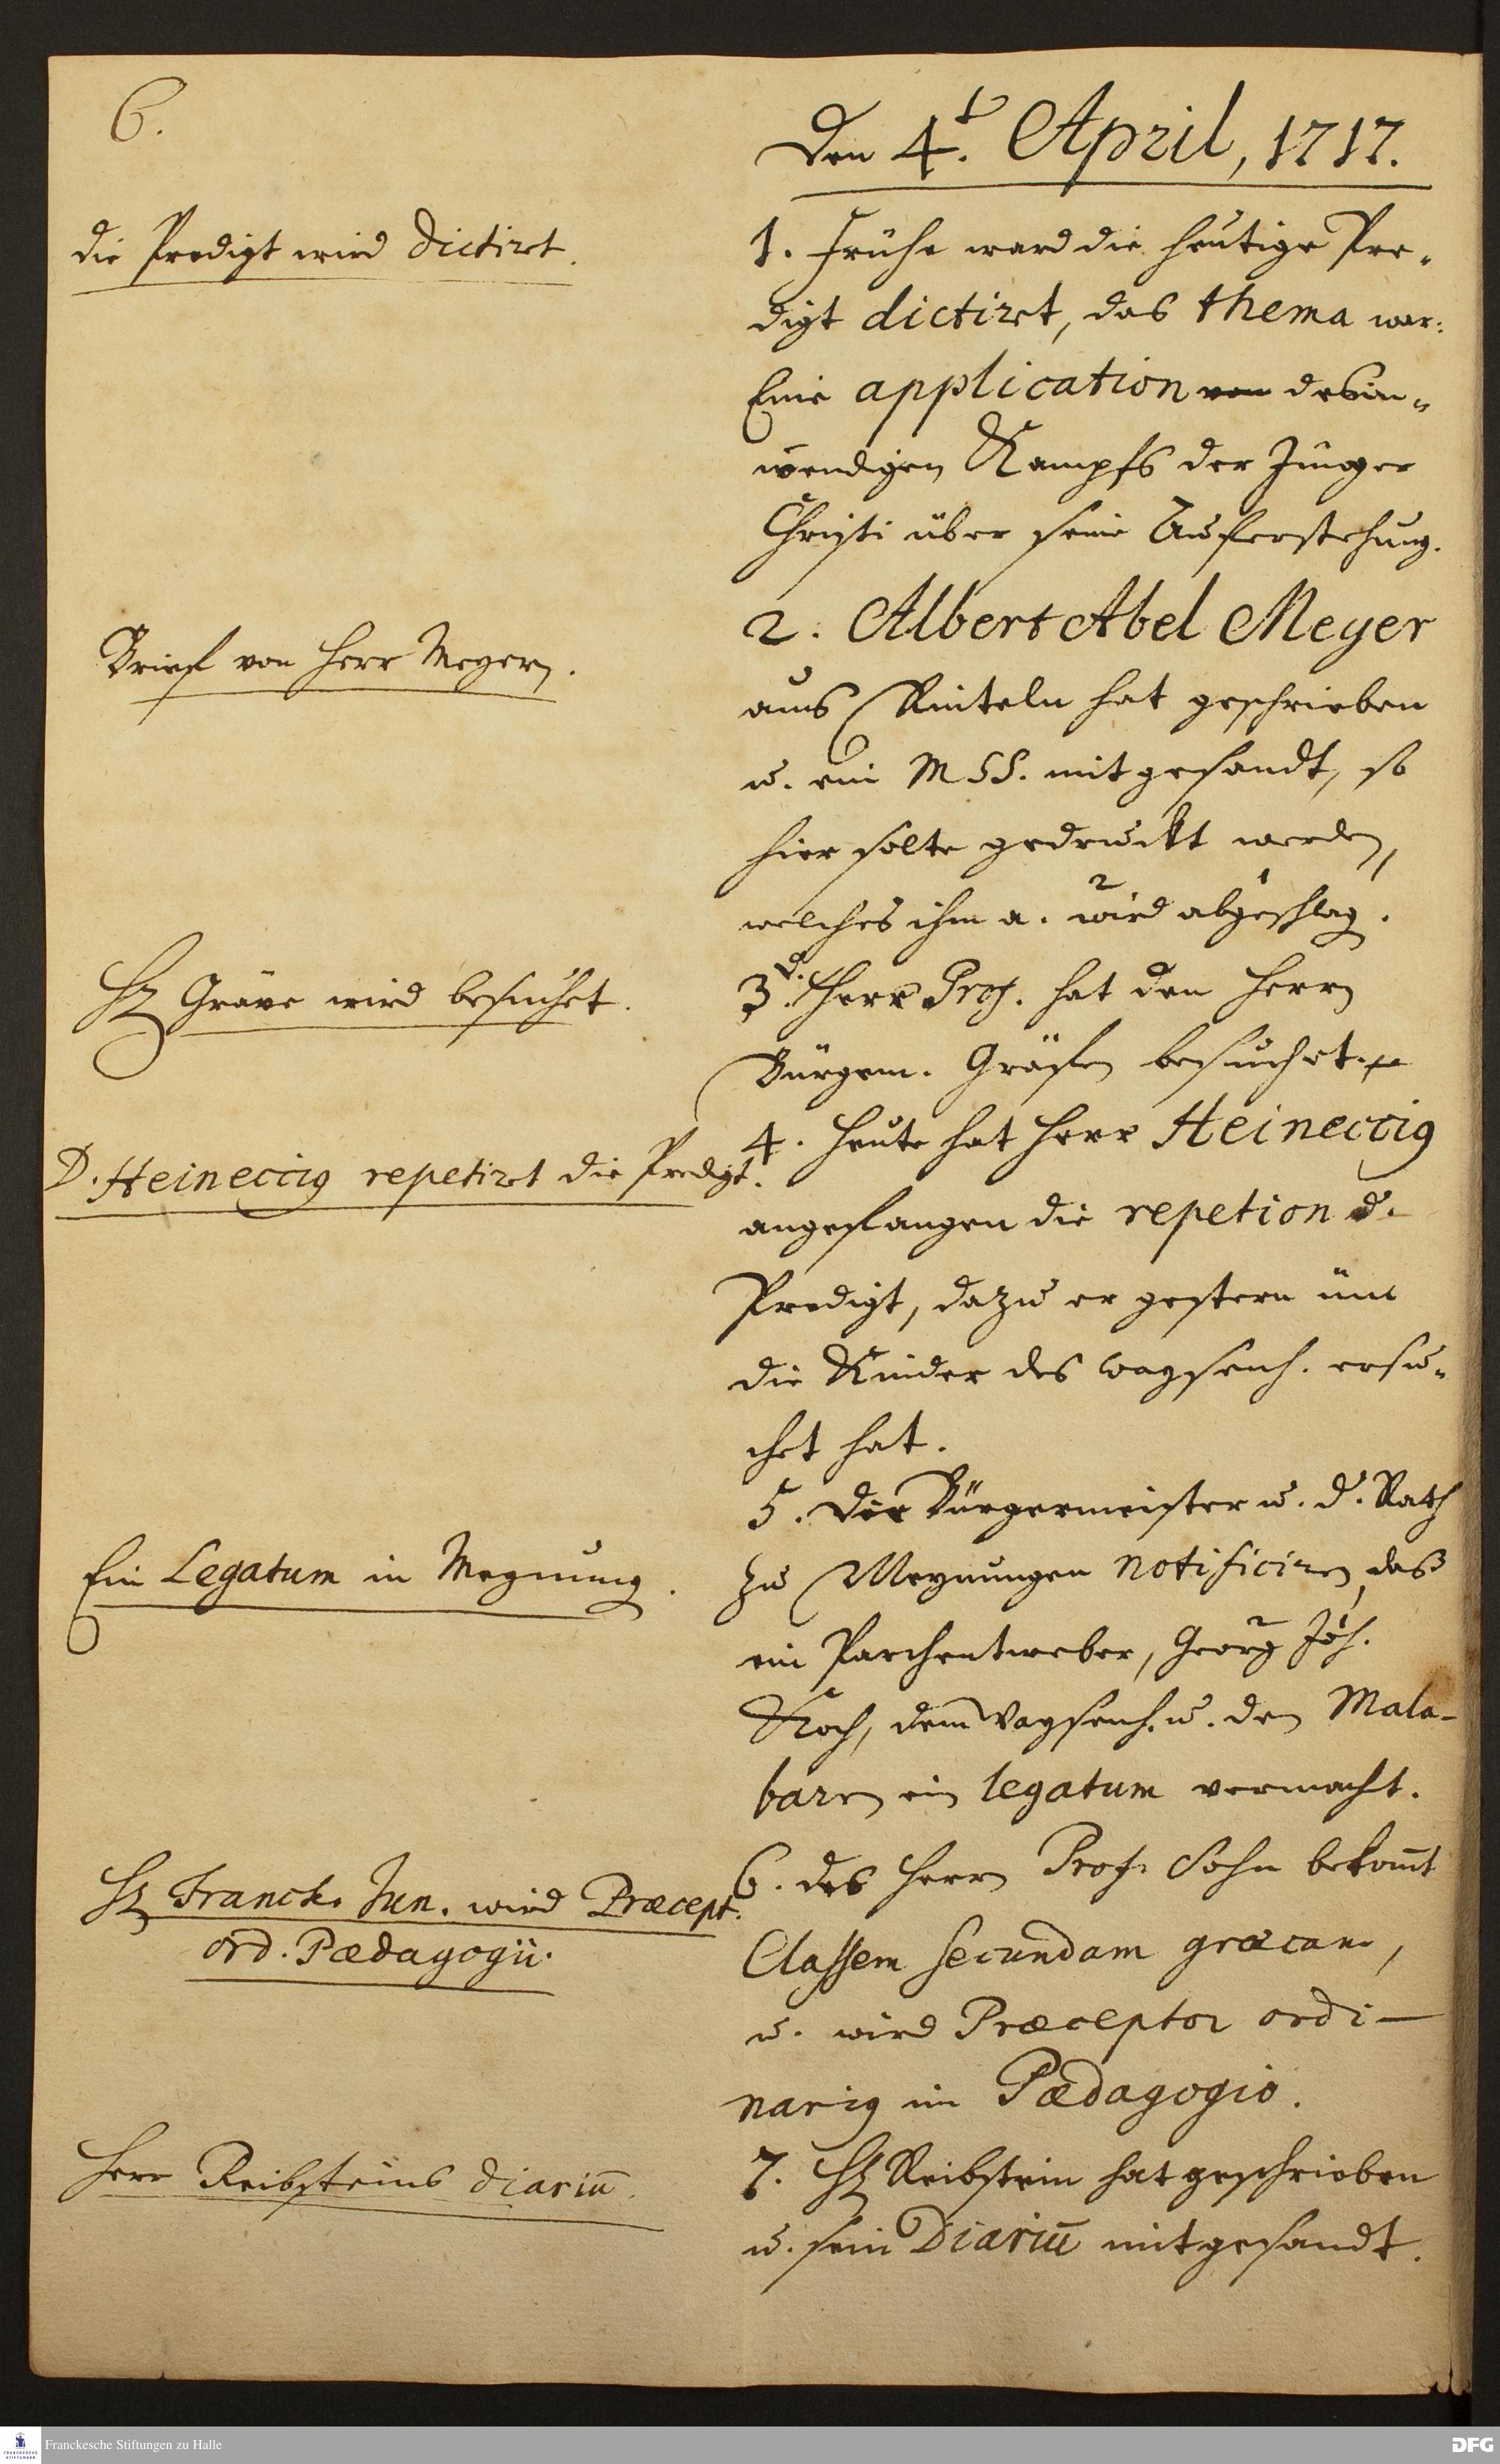 6.
Den 4.t April, 1717.
die Predigt wird dictiret.
1. Frühe ward die heutige Pre-
digt dictiret, das thema war:
Eine application von des in-
wendigen Kampfs der Jünger
Christi über seine Auferstehung.
Brief von Herr Meyern.
2. Albert Abel Meyer
aus Rinteln hat geschrieben
u. ein MSS. mitgesandt, so
hier solte gedruckt werden,
welches ihm a. wird abgeschlag.
Hr Gräve wird besuchet.
3. d. Herr Prof. hat den Herrn
Bürgem. Gräfen besuchet.
D. Heineccius repetiret die Predigt.
4. Heute hat Herr Heineccius
angefangen die repetion d.
Predigt, dazu er gestern um
die Kinder des Waysenh. ersu-
chet hat.
Ein Legatum in Meynung.
5. Der Bürgermeister u. d. Rath
zu Meynungen notificiren, daß
ein Parchentweber, Georg Joh.
Koch, dem Waysenh. u. den Mala-
baren ein legatum vermacht.
Hr Franck. Jun. wird Præcept.
ord. Pædagogii.
6. des Herrn Prof. Sohn bekom̄t
Classem secundam græcam,
u. wird Præceptor ordi-
narius im Pædagogio.
Herr Reibsteins diariū.
7. Hr Reibstein hat geschrieben
u. sein Diariū mitgesandt.
Franckesche Stiftungen zu Halle
DFG